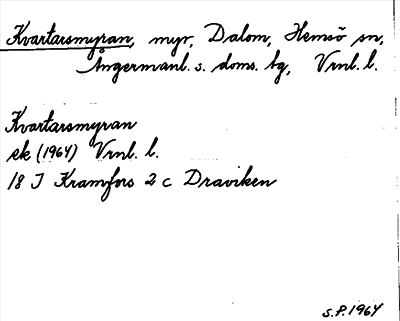 Kvartarsmyran, myr, Dalom, Hemsö sn,
Ångermanl. s. doms. tg, Vrnl. l.
Kvartarsmyran
ek (1964) Vrnl. l.
18 J Kramfors 2 c Draviken
S.P. 1964